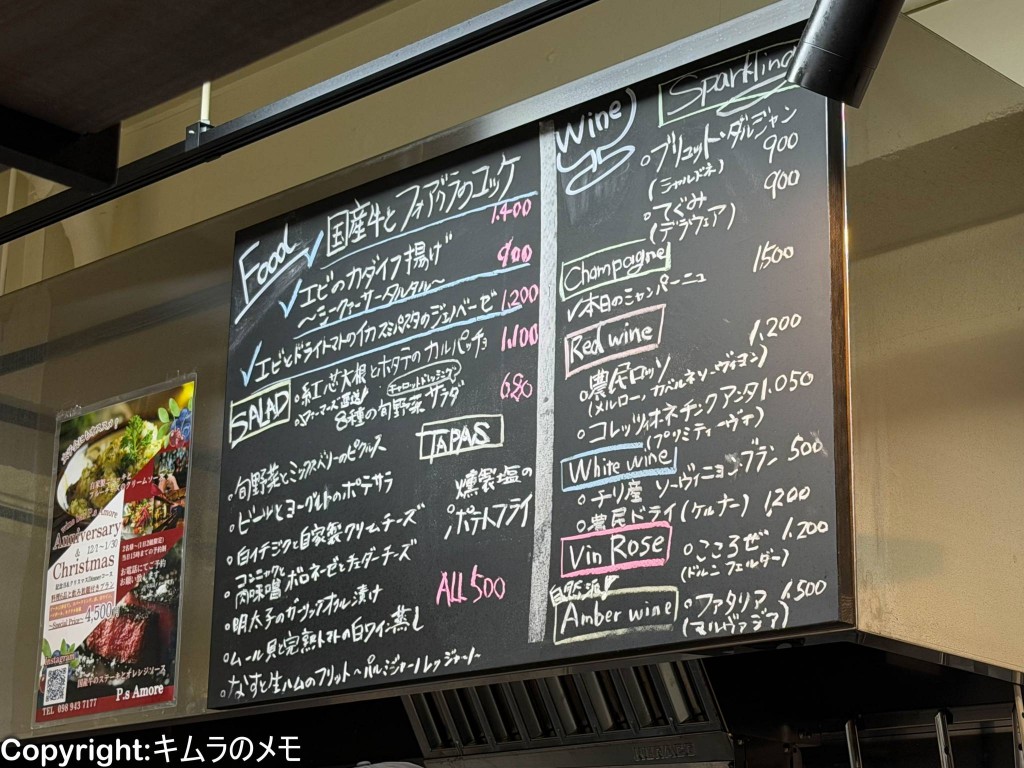 Food
国産牛とフォアグラのユッケ
1.400
エビのカダイフ揚げ
〜シークァーサータルタル〜
900
エビとドライトマトのイカスミパスタのジェノベーゼ
1.200
紅芯大根とホタテのカルパッチョ
1,100
SALAD
キャロットドレッシング
8種の旬野菜サラダ
680
TAPAS
旬野菜とミックスベリーのピクルス
ビーツとヨーグルトのポテサラ
白イチジクと自家製クリームチーズ
コンニャクと
肉味噌ボロネーゼとチェダーチーズ
明太子のガーリックオイル漬け
ムール貝と完熟トマトの白ワイン蒸し
なすと生ハムのフリット〜パルミジャーノレッジャーノ〜
燻製塩の
ポテトフライ
ALL 500
Wine
Sparkling
ブリュット・ダルジャン
(シャルドネ)
900
てぐみ
(デラウェア)
900
Champagne
本日のシャンパーニュ
1,500
Red wine
農民ロッソ
1,200
(メルロー、カベルネソーヴィヨン)
コレッツィオネチンクアンタ 1.050
(プリミティーヴォ)
White wine
チリ産 ソーヴィニヨンブラン 500
農民ドライ(ケルナー) 1,200
Vin Rose
こころぜ 1.200
(ドルンフェルダー)
自然派!
Amber wine
ファタリア 1.500
(マルヴァジア)
Anniversary
&
Christmas
12/1〜1/30
4,500
Instagram
国産牛のステーキとオレンジソース
P.s Amore
TEL 098 943 7177
Copyright:キムラのメモ